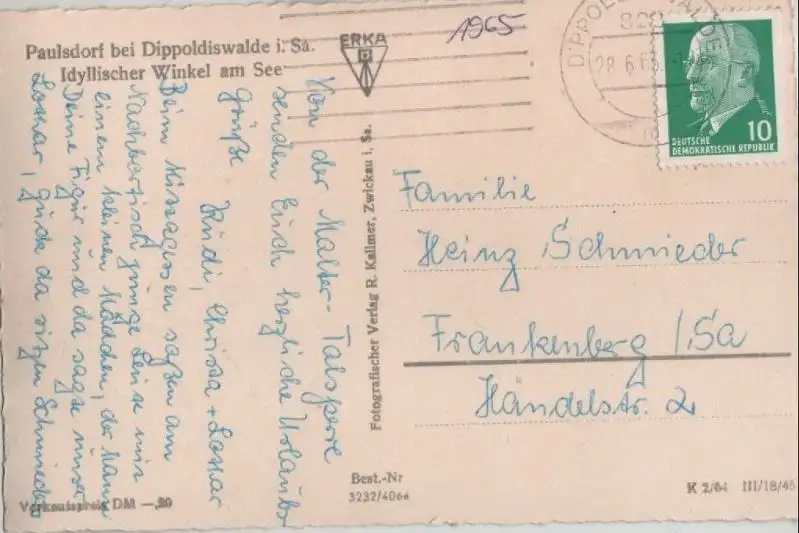 Paulsdorf bei Dippoldiswalde i. Sa.
Idyllischer Winkel am See
ERKA
1965
DIPPOLDISWALDE
28.6.65
DEUTSCHE
DEMOKRATISCHE REPUBLIK
10
Von der Malter-Talsperre
senden Euch herzliche Urlaubs
grüße
Rüdi, Christa + Lothar
Beim Mittagessen saßen am
Nachbartisch junge Leute mit
einem kleinen Mädchen, der Mann
Deine Figur und da sagte unser
Lothar, guck da sitzen Schmieders
Fotografischer Verlag R. Kallmer, Zwickau i. Sa.
Familie
Heinz Schmieder
Frankenberg /Sa
Händelstr. 2
Best.-Nr
3232/4066
Verkaufspreis DM —,20
K 2/64 III/18/45